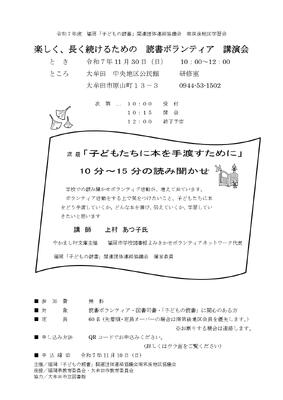 令和7年度 福岡「子どもの読書」関連団体連絡協議会 南筑後地区学習会
楽しく、長く続けるための 読書ボランティア 講演会
とき 令和7年11月30日（日） 10：00～12：00
ところ 大牟田 中央地区公民館 研修室
大牟田市原山町13－3 0944-53-1502
次第… 10：00 受付
10：15 開会
12：00 終了予定
演題「子どもたちに本を手渡すために」
10分～15分の読み聞かせ
学校での読み聞かせボランティア活動が、増えて来ています。
ボランティア活動をする上で気をつけたいこと、子どもたちに本
をどう手渡していくか。どんな本を選び、伝えていくか、学習してい
きたいと思います
講師 上村 あつ子氏
やかまし村文庫主催 福岡市学校図書館よみきかせボランティアネットワーク代表
福岡「子どもの読書」関連団体連絡協議会 運営委員
■ 参加費 無料
■ 対象 読書ボランティア・図書司書・「子どもの読書」に関心のある方
■ 定員 60名（先着順・定員オーバーの場合は南筑後地区会員を優先します。）
※お断りする場合は連絡します。
■ 申し込み方法 QRコードでお申込みください。
（詳しくはウラ面をご覧ください）
■ 申込締切 令和7年11月10日（日）
主催／福岡「子どもの読書」関連団体連絡協議会南筑後地区協議会
後援／福岡県教育委員会・大牟田市教育委員会
協力／大牟田市立図書館